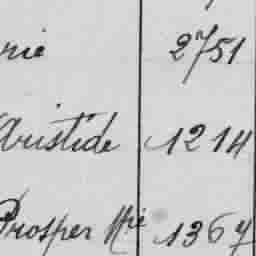 rie 2751
Aristide 1214
Prosper Mie 1367